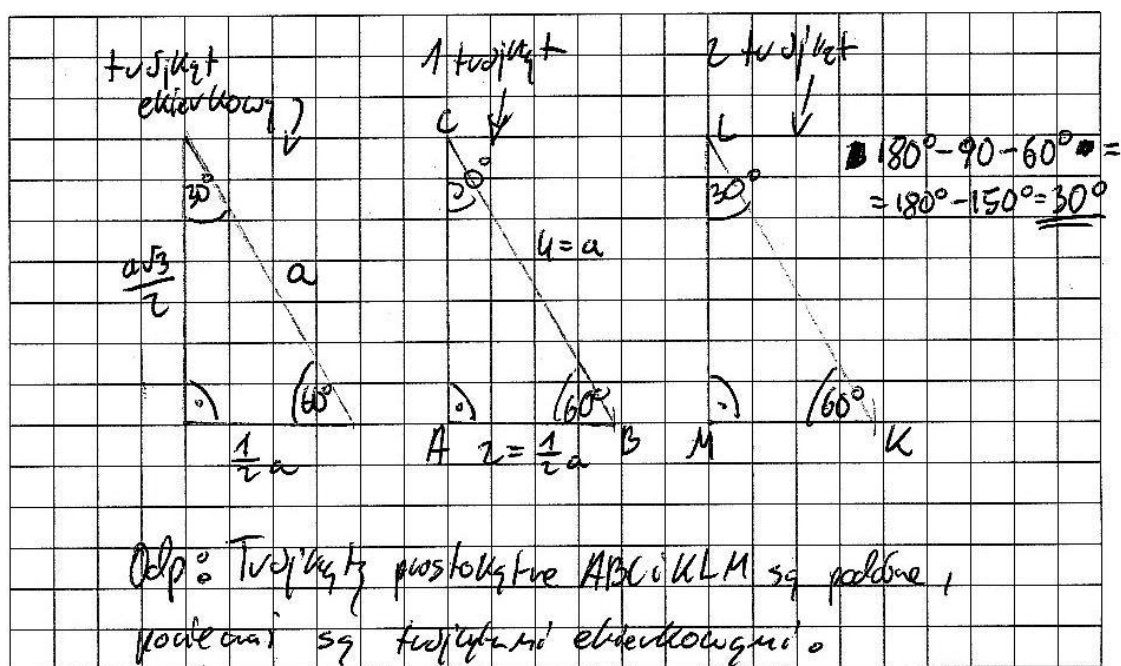 trójkąt
ekierkowy
1 trójkąt
2 trójkąt
C
L
180° - 90 - 60° =
= 180° - 150° = 30°
30°
30°
a√3/2
a
4 = a
60°
60°
60°
1/2 a
A 2 = 1/2 a B
M
K
Odp: Trójkąty prostokątne ABC i KLM są podobne,
ponieważ są trójkątami ekierkowymi.